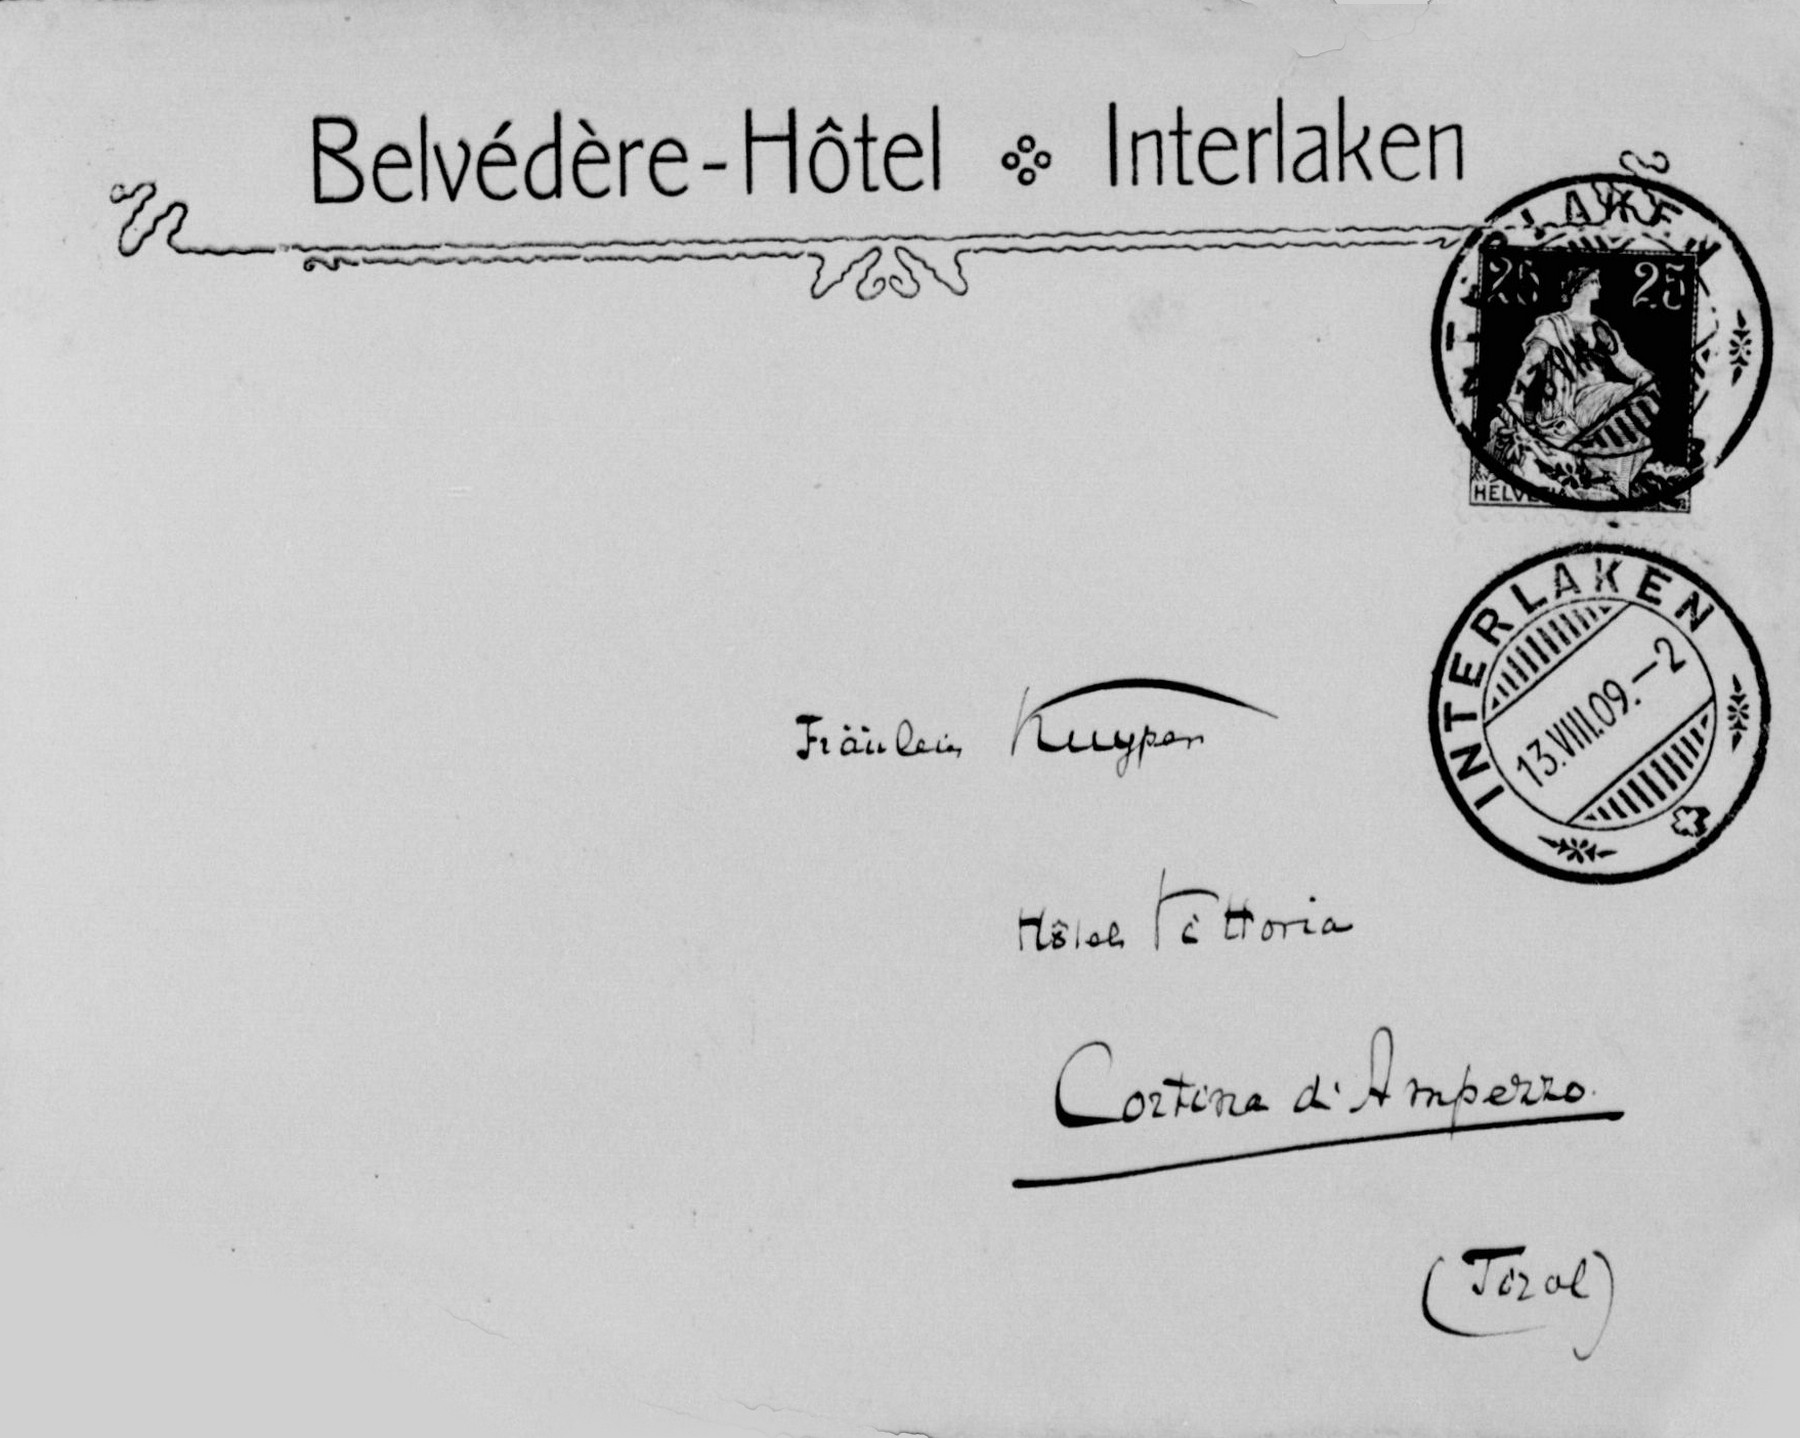 Belvédère-Hôtel Interlaken
25 25
HELVETIA
INTERLAKEN
INTERLAKEN
13.VIII.09.—2
Fräulein Kuyper
Hôtel Vittoria
Cortina d'Ampezzo.
(Tirol)